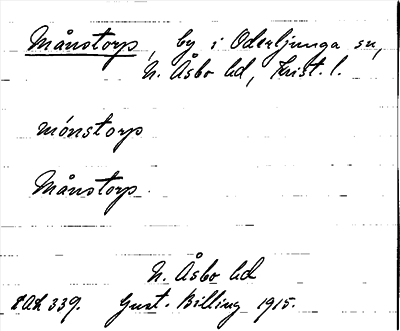 Månstorp, by i Oderljunga sn,
N. Åsbo hd, Krist. l.
mónstorp
Månstorp
N. Åsbo hd
339. Gust. Billing 1915.